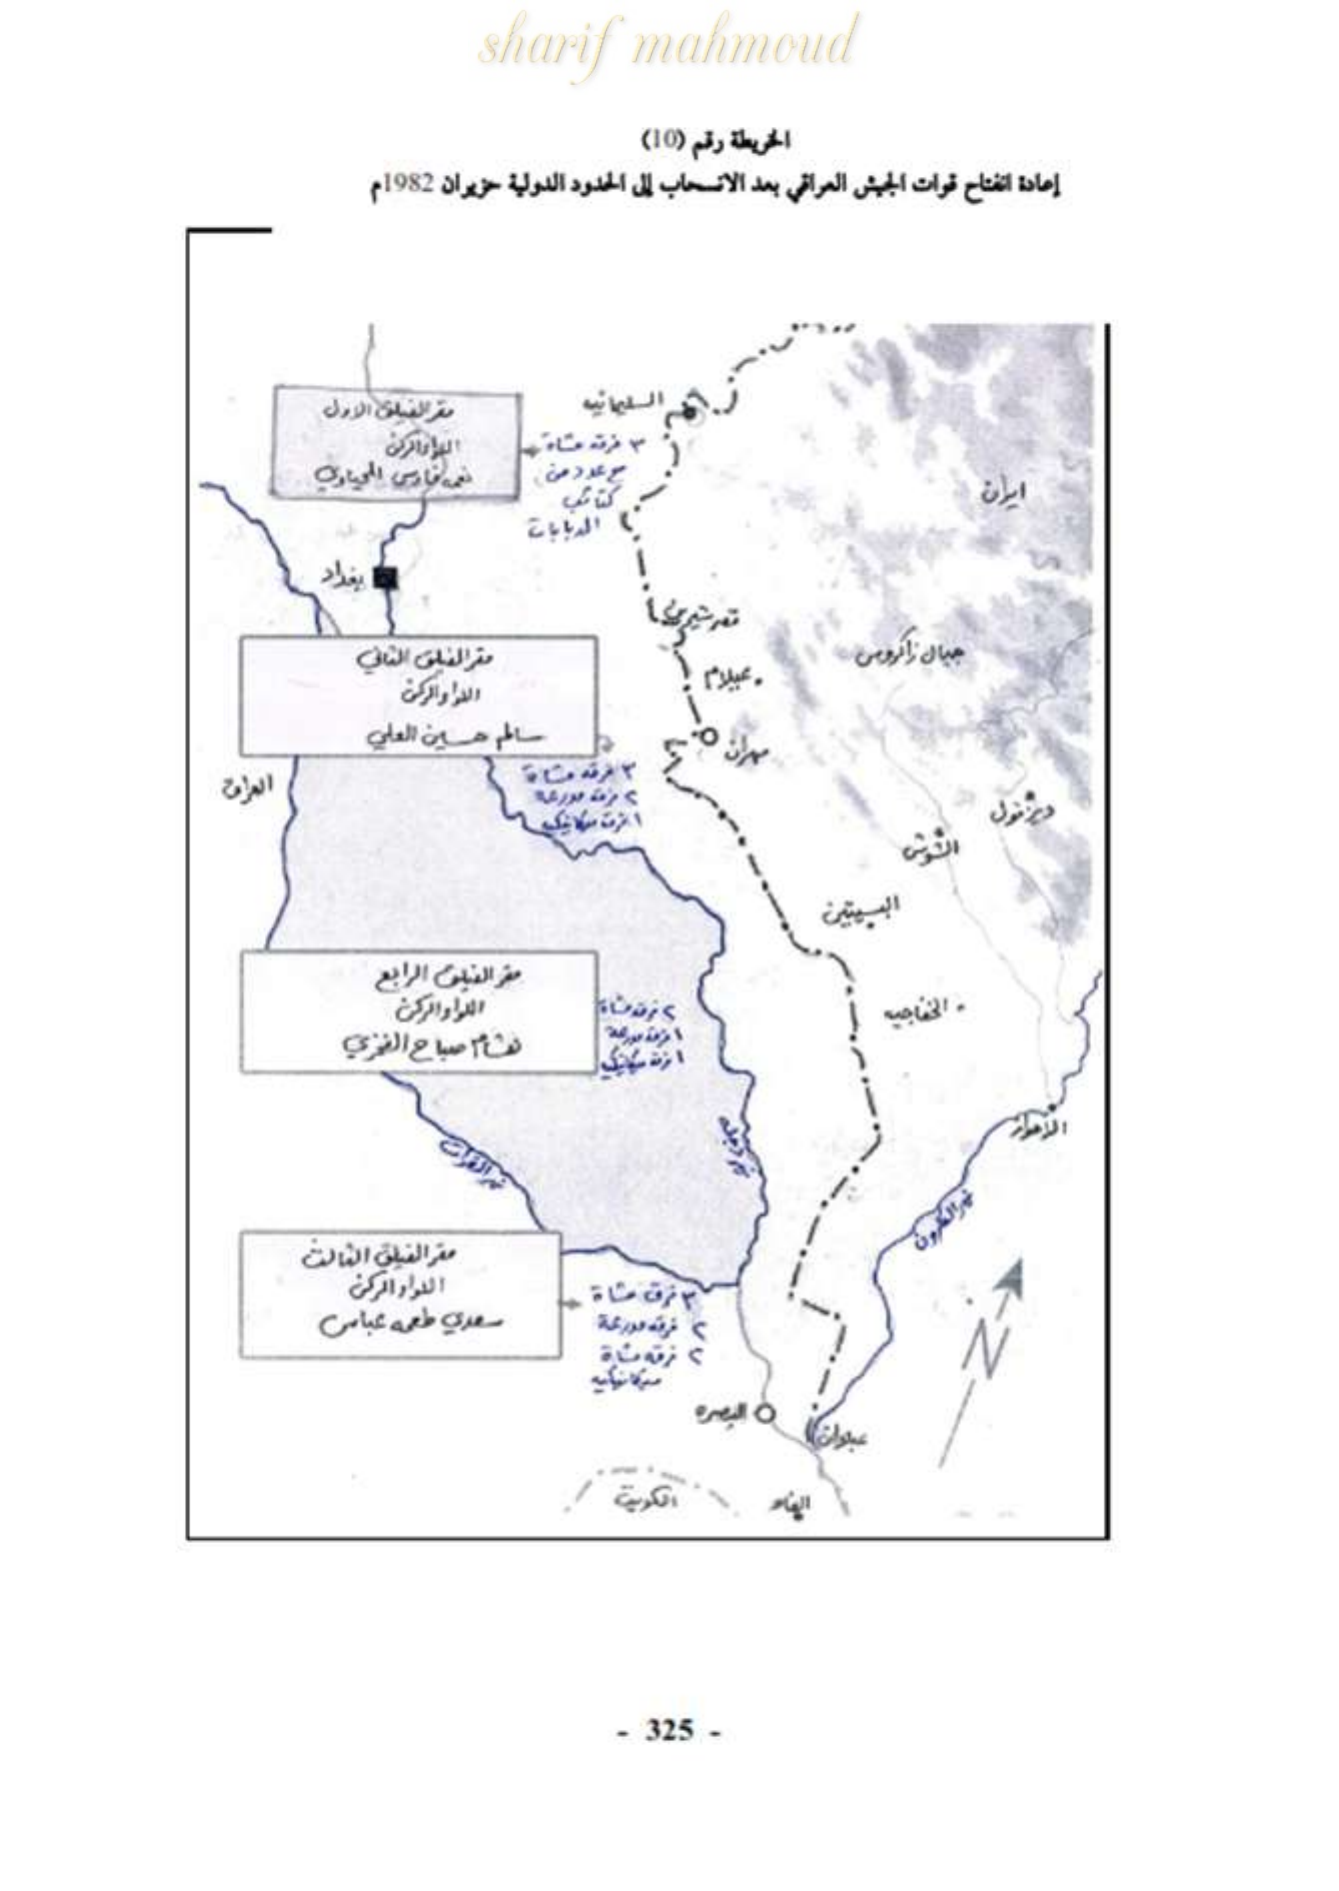 sharif mahmoud
الخريطة رقم (10)
إعادة انفتاح قوات الجيش العراقي بعد الانسحاب إلى الحدود الدولية حزيران 1982م
السليمانيه
مقر الفيلق الاول
اللواء الركن
المحياوي
٣ فرقه مشاة
مع عدد من
كتائب
الدبابات
ايران
بغداد
قصر شيرين
جبال زاكروس
عيلام
مقر الفيلق الثاني
اللواء الركن
سالم حسين العلي
مهران
٣ فرقه مشاة
٢ فرقه مدرعة
١ فرقه ميكانيكيه
العراق
ديزفول
الشوش
البسيتين
مقر الفيلق الرابع
اللواء الركن
هشام صباح الفخري
٢ فرقه مشاة
١ فرقه مدرعة
١ فرقه ميكانيكيه
الخفاجيه
الاحواز
نهر دجله
نهر الفرات
نهر الكارون
مقر الفيلق الثالث
اللواء الركن
سعدي طعمه عباس
٣ فرق مشاة
٢ فرقه مدرعة
٢ فرقه مشاة
ميكانيكيه
N
البصره
عبادان
الكويت
الفاو
- 325 -